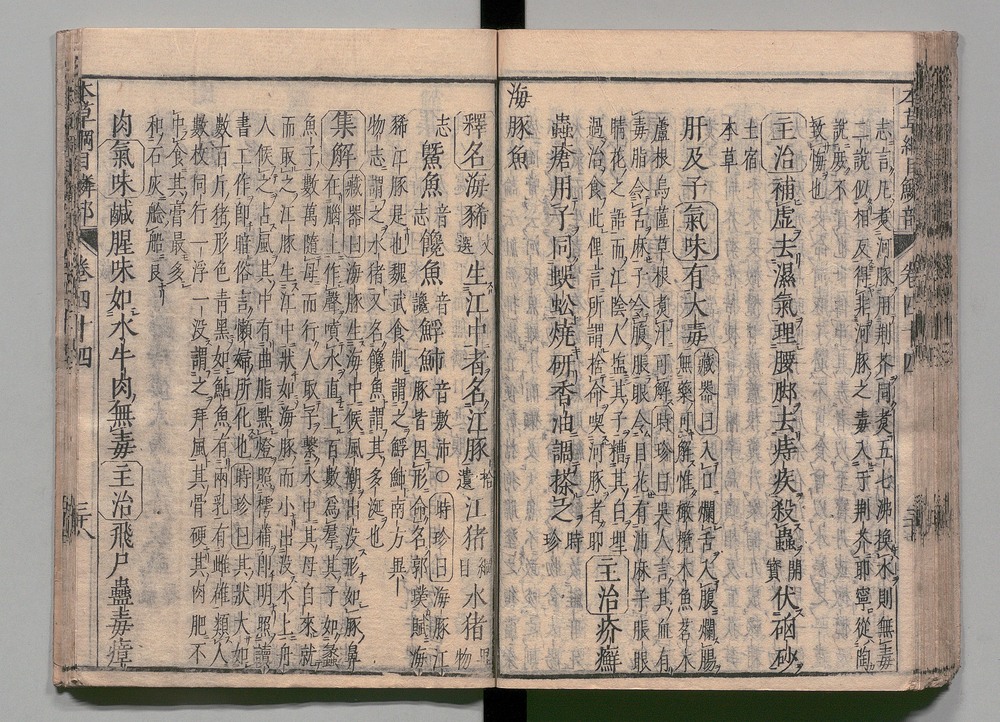 本草綱目鱗部 卷四十四
志言凡煮河豚用荆芥同煮五七沸換水則無毒
二說似相反得非河豚之毒入于荆芥耶寧從陶
說庶不
致悔也
主治補虛去濕氣理腰脚去痔疾殺蟲開寶伏硇砂
土宿
本草
肝及子氣味有大毒藏器曰入口爛舌入腹爛腸無藥可解惟橄欖木魚茗木
蘆根烏蓲草根煮汁可解時珍曰吳人言其血有
毒脂令舌麻子令腹脹眼令目花有油麻子脹眼
睛花之語而江陰人盐其子糟其白埋
過治食此俚言所謂捨命喫河豚者耶主治疥癬
蟲瘡用子同蜈蚣燒研香油調搽之時珍
海豚魚
釋名海豨文選生江中者名江豚拾遺江猪綱目水猪異物
志䱜魚音志饞魚音讒䱵䰽音敷沛○時珍曰海豚江
豚皆因形命名郭璞賦海
豨江豚是也魏武食制謂之䱵䰽南方異
物志謂之水猪又名饞魚謂其多涎也
集解藏器曰海豚生海中候風潮出没形如豚鼻
在腦上作聲噴水直上百數爲羣其子如蠡
魚子數萬隨母而行人取子繫水中其母自來就
而取之江豚生江中狀如海豚而小出没水上舟
人候之占風其中有曲脂點燈照樗蒱即明照讀
書工作即暗俗言懶婦所化也時珍曰其狀大如
數百斤猪形色青黑如鮎魚有兩乳有雌雄類人
數枚同行一浮一没謂之拜風其骨硬其肉肥不
中食其膏最多
和石灰艌船良
肉氣味鹹腥味如水牛肉無毒主治飛尸蠱毒瘴
本草綱目鱗部 卷四十四 三十八